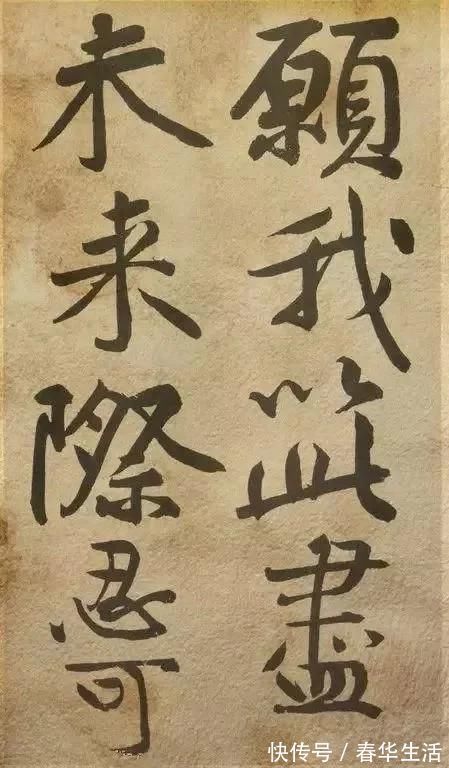 願我以此盡
未来際忍可
快传号 / 春华生活